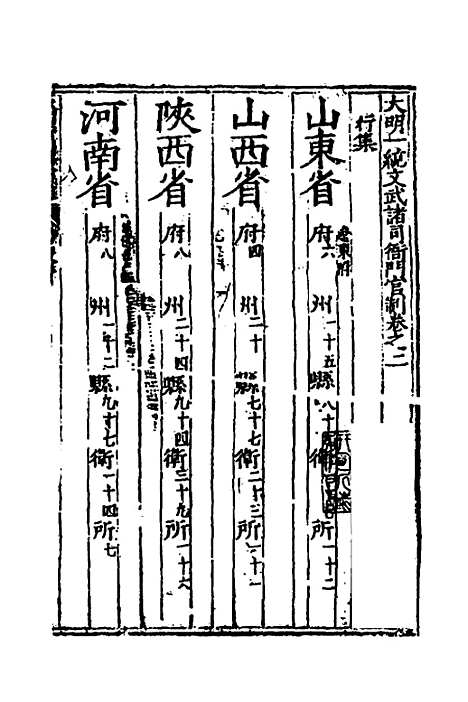 大明一統文武諸司衙門官制卷之二
行集
山東省 府六 州一十五 縣八十 衛 所一十二
山西省 府四 州二十 縣七十七 衛二十三 所一十一
陝西省 府八 州二十四 縣九十四 衛三十九 所一十六
河南省 府八 州一十二 縣九十七 衛一十四 所七